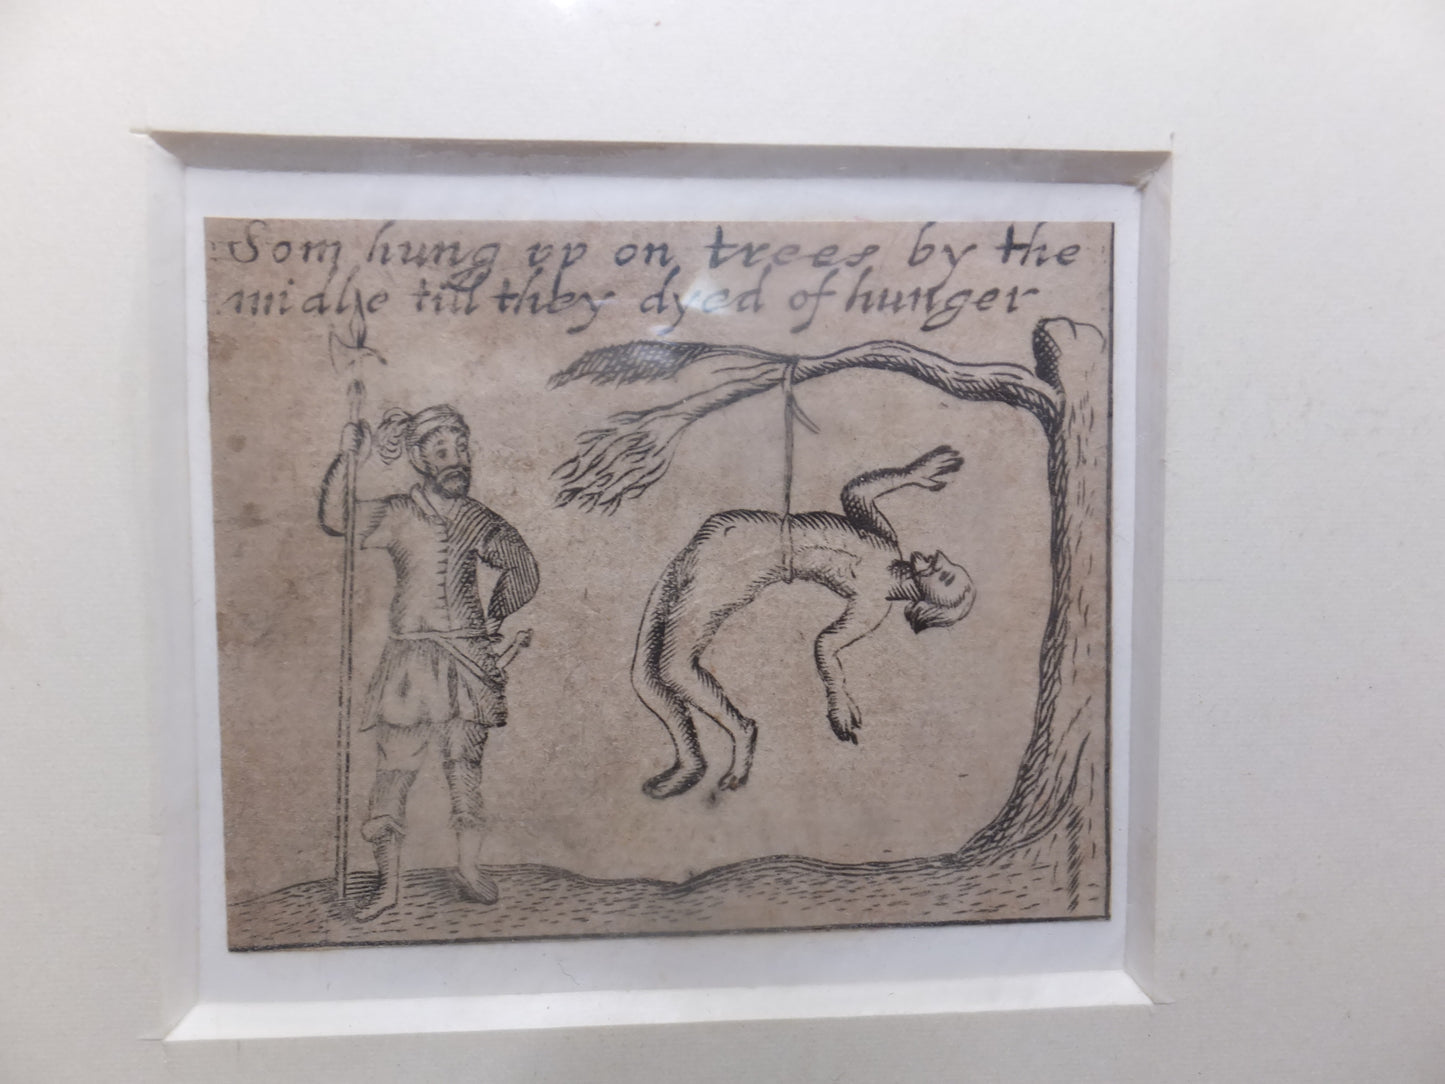 Som hung vp on trees by the
midle till they dyed of hunger